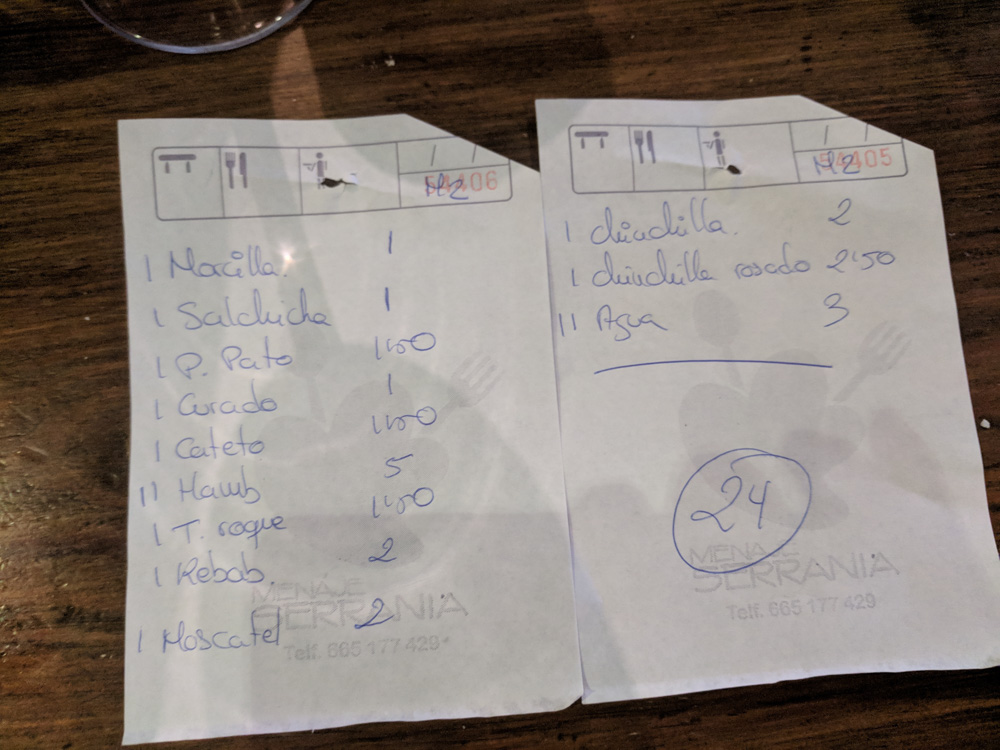 54406
M2
1 Morcilla. 1
1 Salchicha 1
1 P. Pato 1'50
1 Curado 1
1 Cateto 1'50
11 Hamb 5
1 T. roque 1'50
1 Rebab. 2
1 Moscatel 2
MENAJE
SERRANIA
Telf. 665 177 429
54405
M2
1 chinchilla. 2
1 chinchilla rosado 2'50
11 Agua 3
24
MENAJE
SERRANIA
Telf. 665 177 429